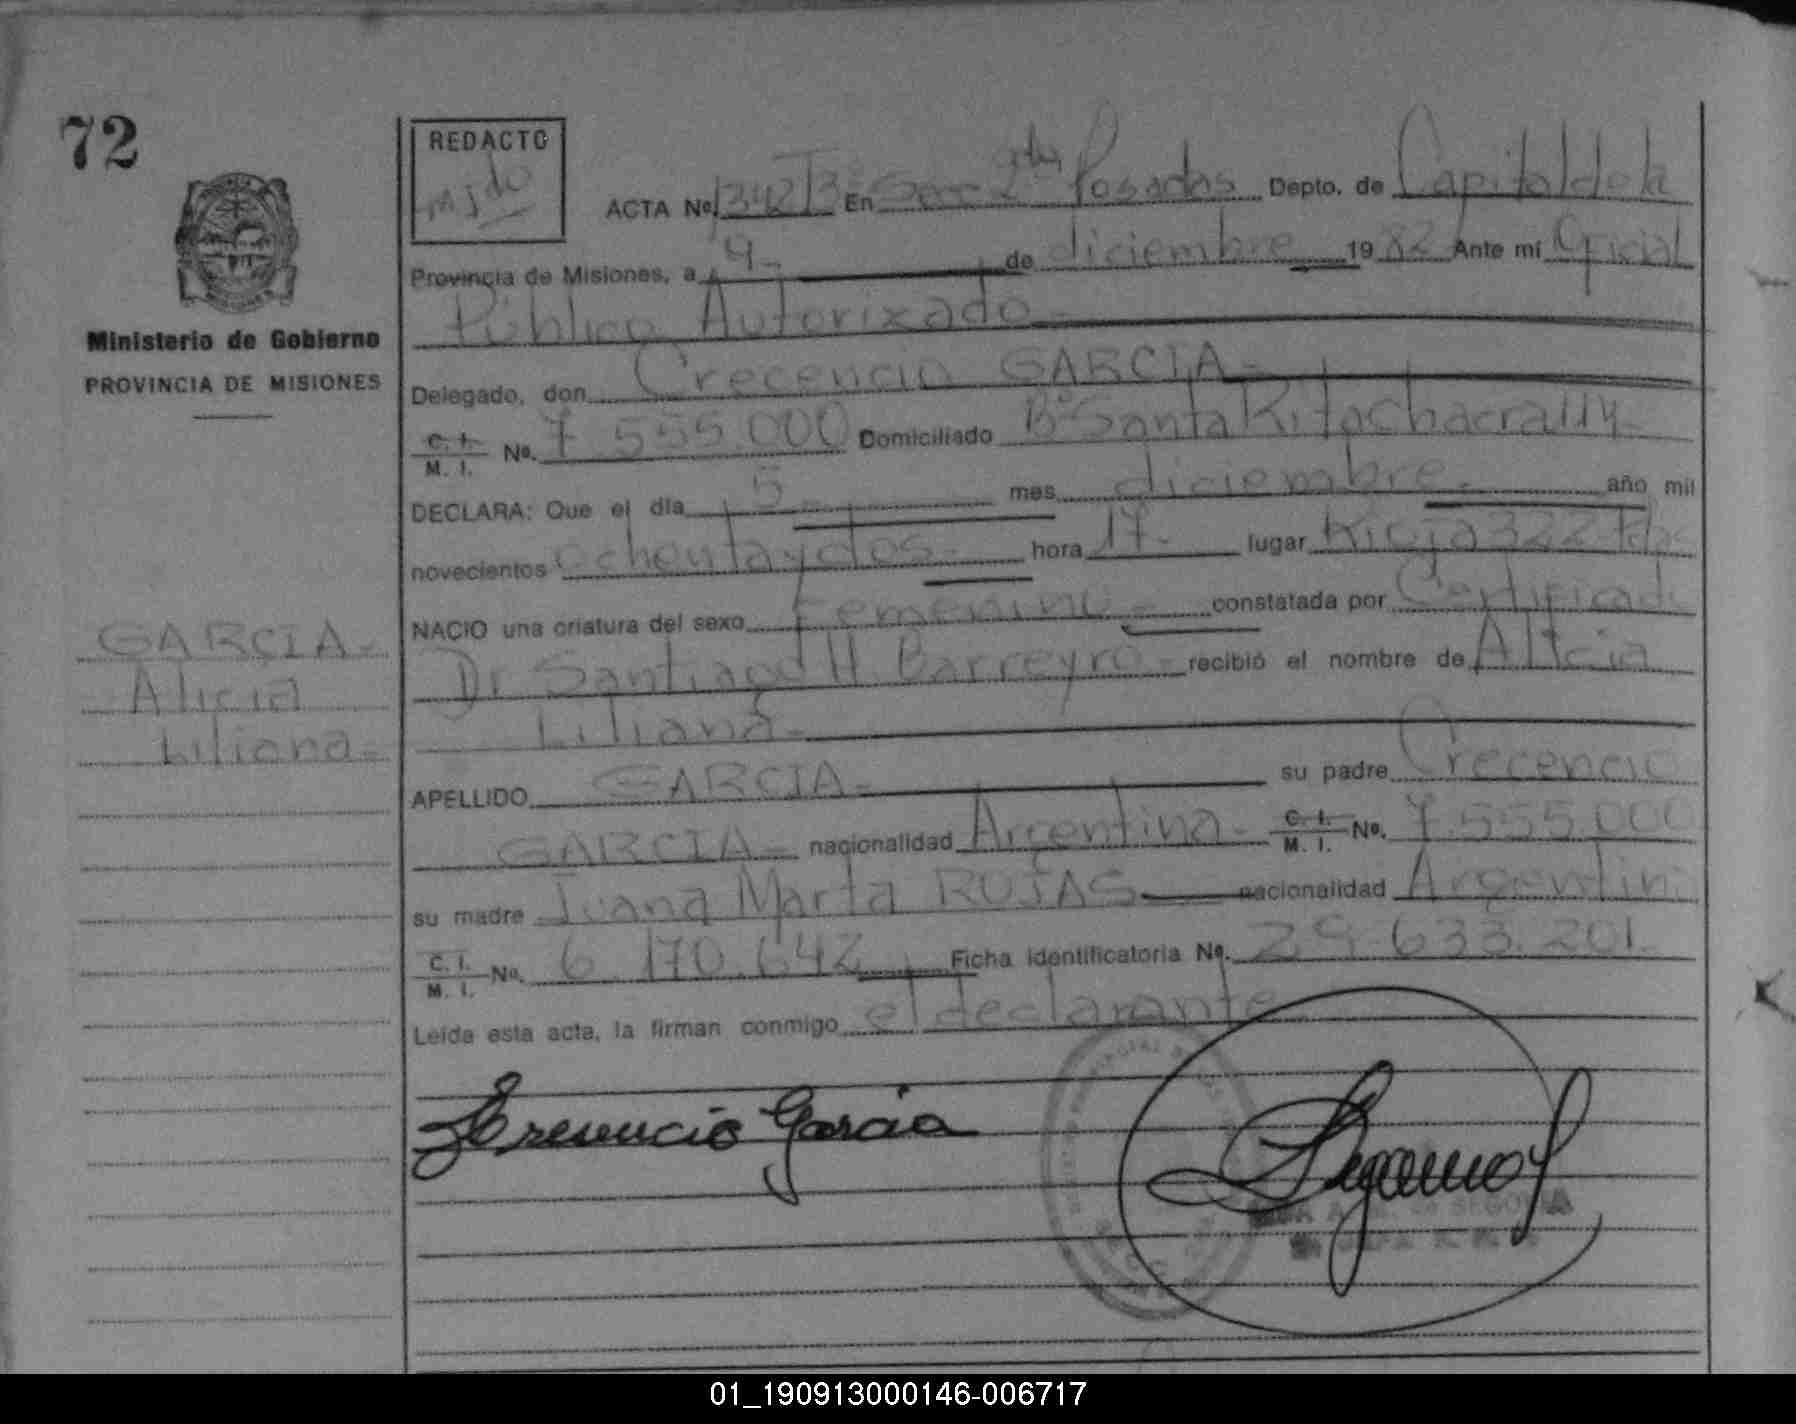 72
REDACTO
ACTA No 3421 3º En Secc 2ª Posadas Depto. de Capital de la
Provincia de Misiones, a 9 de diciembre 1982 Ante mi Oficial
Público Autorizado
Ministerio de Gobierno
PROVINCIA DE MISIONES
Delegado, don Crecencio GARCIA
C. I. M. I. No. 7.555.000 Domiciliado Bº Santa Rita chacra 114
DECLARA: Que el día 5 mes diciembre año mil
novecientos ochenta y dos hora 17 lugar Rioja 322 Pdas
NACIO una criatura del sexo Femenino constatada por Certificado
Dr Santiago H Barreyro recibió el nombre de Alicia
Liliana
GARCIA
Alicia
Liliana
APELLIDO GARCIA su padre Crecencio
GARCIA nacionalidad Argentina C. I. M. I. No. 7.555.000
su madre Juana Marta ROJAS nacionalidad Argentina
C. I. M. I. No. 6.170.642 Ficha identificatoria No. 29.633.201
Leída esta acta, la firman conmigo el declarante
Crecencio Garcia
de SEGOVIA
01_190913000146-006717